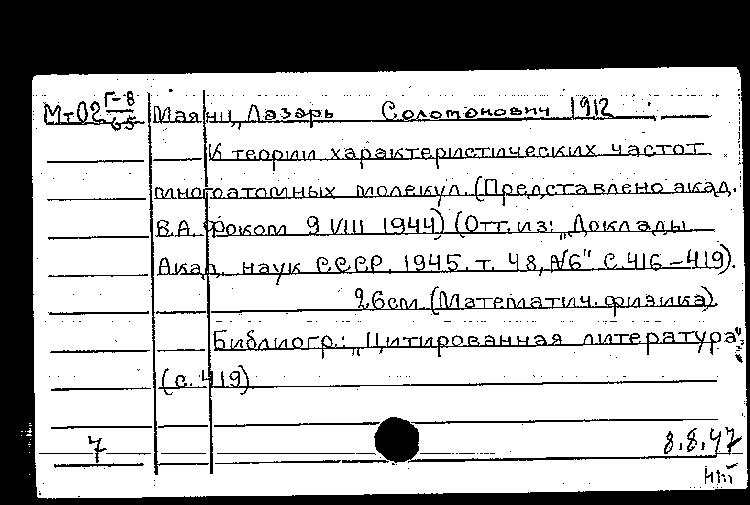 Мт02 Г-8/65 Маянц, Лазарь Соломонович 1912
К теории характеристических частот
многоатомных молекул. (Представлено акад.
В.А. Фоком 9 VIII 1944) (Отт. из: „Доклады
Акад. наук С.С.С.Р. 1945. т. 48, №6" с. 416-419).
26см (Математич. физика).
Библиогр.: „Цитированная литература"
(с. 419)
7 8.8.47